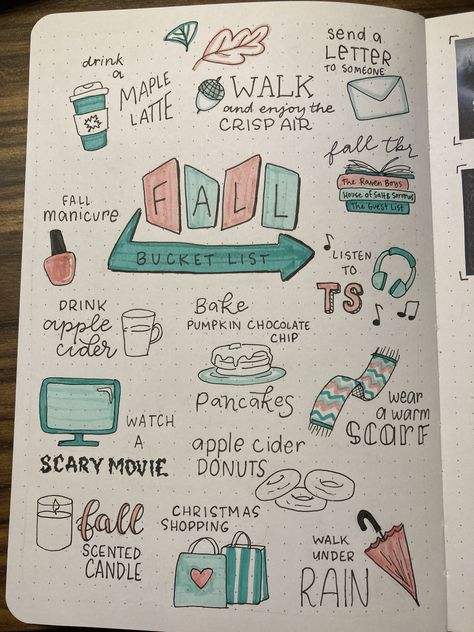 drink
a
MAPLE
LATTE
WALK
and enjoy the
CRISP AIR
send a
LETTER
TO SOMEONE
fall tbr
The Raven Boys
House of Salt& Sorrows
The Guest List
FALL
manicure
FALL
BUCKET LIST
LISTEN
TO
TS
DRINK
apple
cider
Bake
PUMPKIN CHOCOLATE
CHIP
Pancakes
wear
a warm
SCARF
WATCH
A
SCARY MOVIE
apple cider
DONUTS
fall
SCENTED
CANDLE
CHRISTMAS
SHOPPING
WALK
UNDER
RAIN